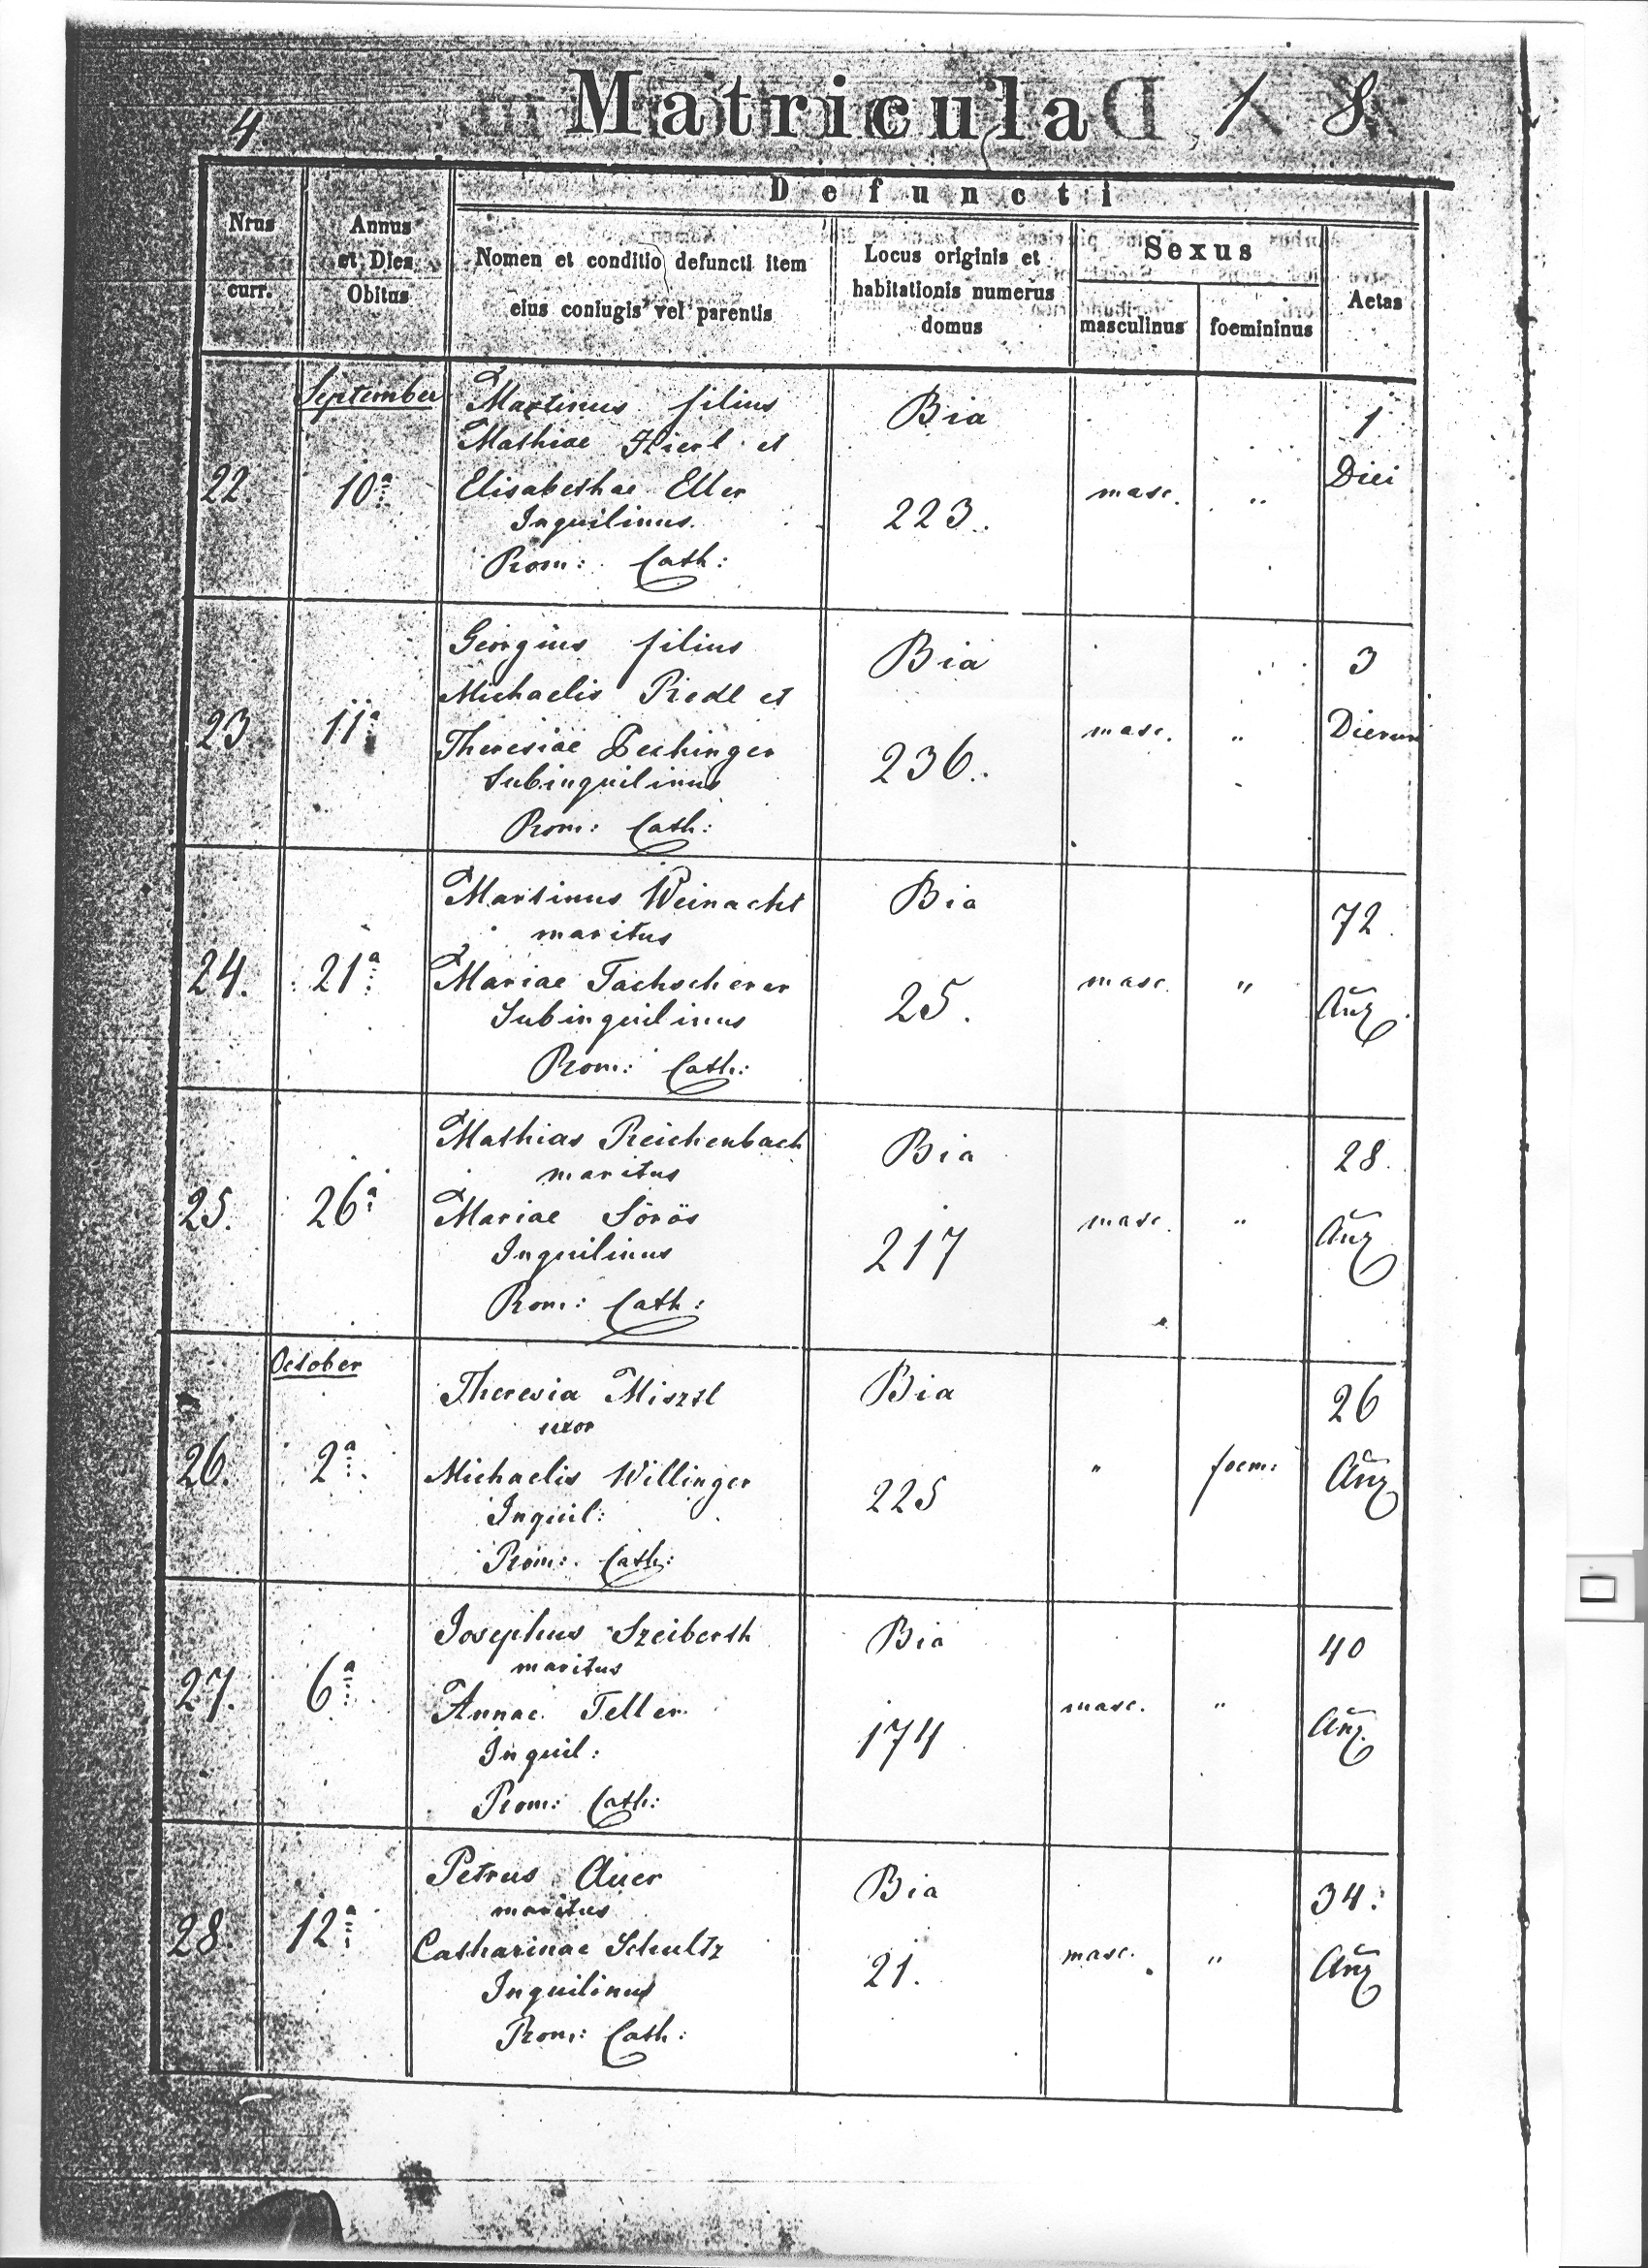 4.
Matricula
1 8
Defuncti
Nrus curr.
Annus et Dies Obitus
Nomen et conditio defuncti item
eius coniugis vel parentis
Locus originis et
habitationis numerus
domus
Sexus
masculinus
foemininus
Aetas
September
22. 10a
Martinus filius
Mathiae Hierl et
Elisabethae Eller
Inquilinus.
Rom: Cath:
Bia
223.
masc. "
1
Diei
23. 11a
Georgius filius
Michaelis Riedl et
Theresiae
Subinquilinus
Rom: Cath:
Bia
236.
masc. "
3
Dierum
24. 21a
Martinus Weinacht
maritus
Mariae Tachscherer
Subinquilinus
Rom: Cath:
Bia
25.
masc. "
72
Aũ
25. 26a
Mathias Reichenbach
maritus
Mariae Sörös
Inquilinus
Rom: Cath:
Bia
217
masc. "
28.
Aũ
October
26. 2a
Theresia Miszl
uxor
Michaelis Willinger
Inquil:
Rom: Cath:
Bia
225
" foem:
26
Aũ
27. 6a
Josephus Szeiberth
maritus
Annae Teller
Inquil:
Rom: Cath:
Bia
174
masc. "
40
Aũ
28. 12a
Petrus Auer
maritus
Catharinae Schultz
Inquilinus
Rom: Cath:
Bia
21.
masc. "
34.
Aũ